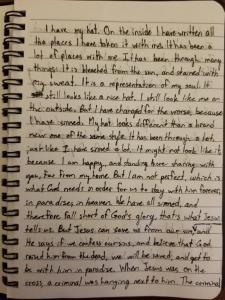 I have my hat. On the inside I have written all
the places I have taken it with me. It has been a
lot of places with me. I has been through many
things. It is bleached from the sun, and stained with
my sweat. It is a representation of my soul. It
still looks like a nice hat. I still look like me on
the outside. But I have changed for the worse, because
I have sinned. My hat looks different than a brand
new one of the same style. It has been through a lot,
just like I have sinned a lot. It might not look like it,
because I am happy, and standing here sharing with
you, far from my home. But I am not perfect, which is
what God needs in order for us to stay with him forever,
in paradise, in heaven. We have all sinned, and
therefore fall short of God's glory, that's what Jesus
tells us. But Jesus can save us from our sin, and
He says if we confess our sins, and believe that God
raised him from the dead, we will be saved, and get to
be with him in paradise. When Jesus was on the
cross, a criminal was hanging next to him. The criminal